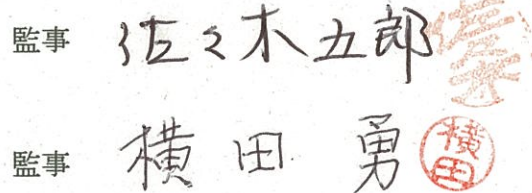 監事 佐々木五郎
監事 横田 勇 横田